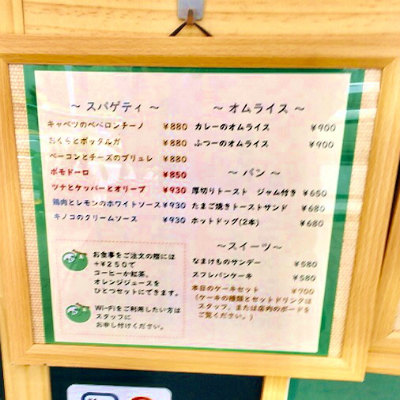 ～ スパゲティ ～
キャベツのペペロンチーノ ￥880
おくらとボッタルガ ￥880
ベーコンとチーズのブリュレ ￥880
ポモドーロ ￥850
ツナとケッパーとオリーブ ￥930
鶏肉とレモンのホワイトソース ￥930
キノコのクリームソース ￥930
お食事をご注文の際には
＋￥250で
コーヒーか紅茶、
オレンジジュースを
ひとつセットにできます。
Wi-Fiをご利用したい方は
スタッフに
お申し付けください。
～ オムライス ～
カレーのオムライス ￥900
ふつーのオムライス ￥900
～ パン ～
厚切りトースト ジャム付き ￥650
たまご焼きトーストサンド ￥680
ホットドッグ(2本) ￥680
～スイーツ～
なまけものサンデー ￥580
スフレパンケーキ ￥580
本日のケーキセット ￥700
(ケーキの種類とセットドリンクは
スタッフ、または店内のボードを
ご覧ください。)